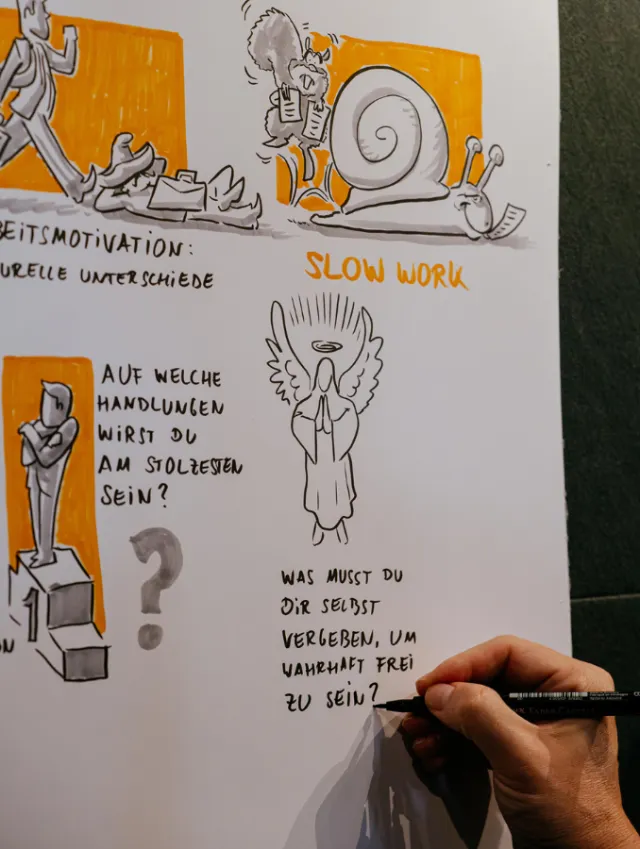 BEITSMOTIVATION:
URELLE UNTERSCHIEDE
SLOW WORK
AUF WELCHE
HANDLUNGEN
WIRST DU
AM STOLZESTEN
SEIN?
?
1
ON
WAS MUSST DU
DIR SELBST
VERGEBEN, UM
WAHRHAFT FREI
ZU SEIN?